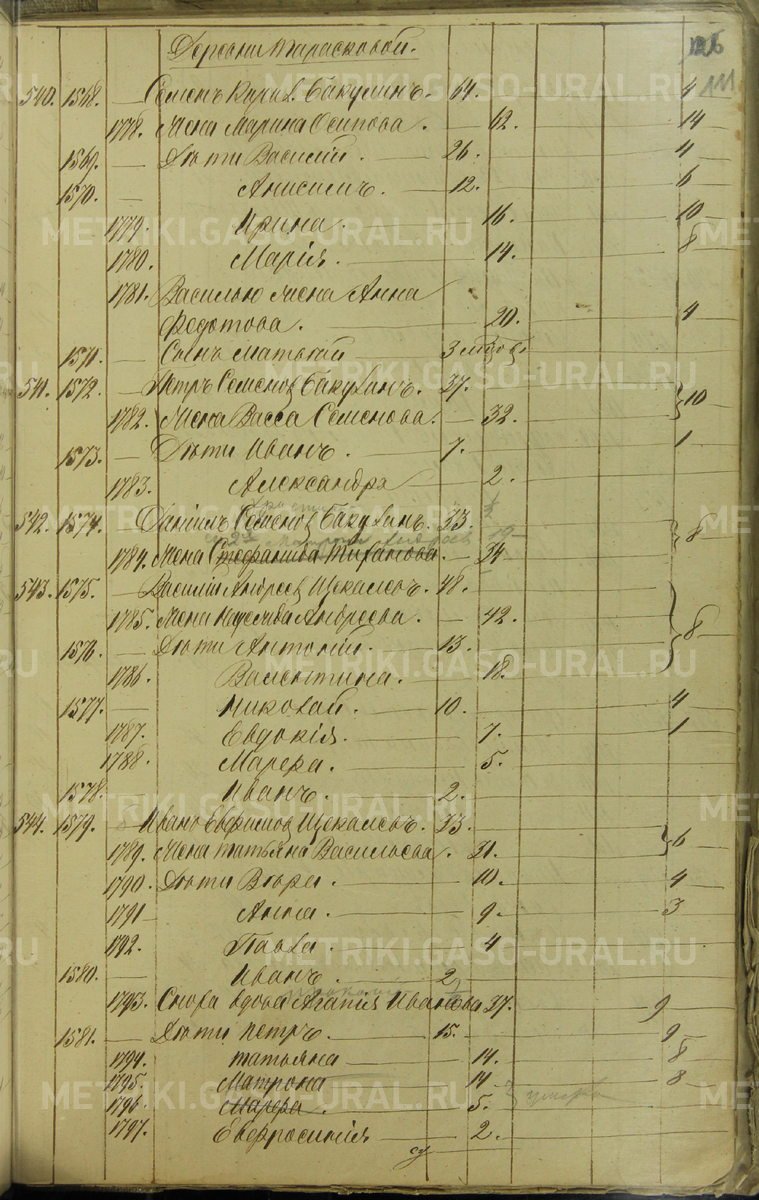 Деревни Тарасковой.
126
111
540. 1568. — Семенъ Карпов. Бакулинъ. 64. 4
1778. Жена Марина Осипова. — 62. 14
1569. — Дѣти Василій. 26. 4
1570. — Анисимъ. 12. 6
1779. Ирина. 16. 10
1780. Марія. 14. 8
1781. Василья жена Анна
Федотова. 20. 4
1571. — Сынъ Матвѣй 3
541. 1572. — Петръ Семенов Бакулинъ. 37.
1782. Жена Васса Семенова. — 32. 10
1573. — Дѣти Иванъ. 7. 1
1783. Александра 2.
542. 1574. — Даніилъ Семенов Бакулинъ. 33. 8
1784. Жена Стефанида Тиханова. — 34
543. 1575. — Василій Андреев Щекалевъ. 48.
1785. Жена Надежда Андреева. — 42. 8
1576. — Дѣти Антоній. 13.
1786. Валентина. 18.
1577. — Николай. 10. 4
1787. Евдокія. 7. 1
1788. Марѳа. 5.
1578. Иванъ. 2.
544. 1579. — Иванъ Евфимов Щекалевъ. 33.
1789. Жена Татьяна Васильева. 31. 6
1790. Дѣти Вѣра. 10. 4
1791 Анна. 9. 3
1792. Павла. 4
1580. — Иванъ. 2
1793. Сноха вдова Агапія Иванова 37. 9
1581. — Дѣти Петръ. 15. 9
1794. Татьяна 14. 8
1795. Матрона 14 8
1796. Марѳа. 5. умерла
1797. Евфросинія 2.
METRIKI.GASO-URAL.RU